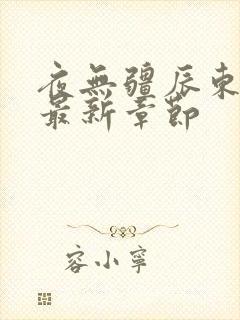 夜無疆辰東
最新章節
容小寧